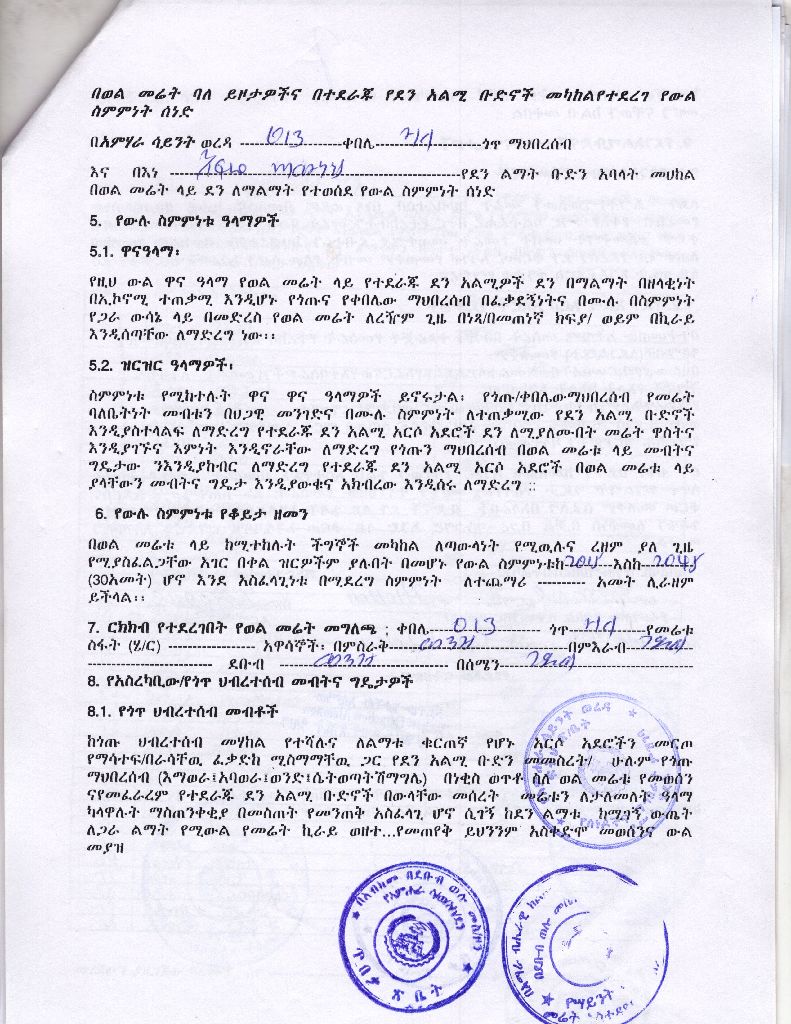 በወል መሬት ባለ ይዞታዎችና በተደራጁ የደን አልሚ ቡድኖች መካከልየተደረግ የውል
ስምምነት ሰነድ
በአምሃራ ሳይንት ወረዳ ------------- 013 -------------ቀበሌ-------------ጎጥ ማህበረሰብ
እና በእነ -------------የደን ልማት ቡድን አባላት መሀከል
በወል መሬት ላይ ደን ለማልማት የተወሰደ የውል ስምምነት ሰነድ
5. የውሉ ስምምነቱ ዓላማዎች
5.1. ዋናዓላማ፡
የዚህ ውል ዋና ዓላማ የወል መሬት ላይ የተደራጁ ደን አልሚዎች ደን በማልማት በዘላቂነት
በኢኮኖሚ ተጠቃሚ እንዲሆኑ የጎጡና የቀበሌው ማህበረሰብ በፈቃደኝነትና በሙሉ በስምምነት
የጋራ ውሳኔ ላይ በመድረስ የወል መሬት ለረዥም ጊዜ በነጻ/በመጠነኛ ክፍያ/ ወይም በኪራይ
እንዲሰጣቸው ለማድረግ ነው፡፡
5.2. ዝርዝር ዓላማዎች፡
ስምምነቱ የሚከተሉት ዋና ዋና ዓላማዎች ይኖሩታል፡ የጎጡ/ቀበሌውማህበረሰብ የመሬት
ባለቤትነት መብቱን በህጋዊ መንገድና በሙሉ ስምምነት ለተጠቃሚው የደን አልሚ ቡድኖች
እንዲያስተላልፍ ለማድረግ የተደራጁ ደን አልሚ አርሶ አደሮች ደን ለሚያለሙበት መሬት ዋስትና
እንዲያገኙና እምነት እንዲኖራቸው ለማድረግ የጎጡን ማህበረሰብ በወል መሬቱ ላይ መብትና
ግዴታው ንእንዲያከብር ለማድረግ የተደራጁ ደን አልሚ አርሶ አደሮች በወል መሬቱ ላይ
ያላቸውን መብትና ግዴታ እንዲያውቁና አክብረው እንዲሰሩ ለማድረግ ::
6. የውሉ ስምምነቱ የቆይታ ዘመን
በወል መሬቱ ላይ ከሚተከሉት ችግኞች መካከል ለጣውላነት የሚዉሉና ረዘም ያለ ጊዜ
የሚያስፈልጋቸው አገር በቀል ዝርዎችም ያሉበት በመሆኑ የውል ስምምነቱከ 2015 እስከ 2045
(30አመት) ሆኖ እንደ አስፈላጊነቱ በሚደረግ ስምምነት ለተጨማሪ ---------- አመት ሊራዘም
ይችላል፡፡
7. ርክክብ የተደረገበት የወል መሬት መግለጫ ; ቀበሌ 013 ጎጥ ------------የመሬቱ
ስፋት (ሄ/ር) ------------------ አዋሳኞች፡ በምስራቅ------------------በምእራብ-------------
-------------------------- ደቡብ ------------------ በሰሜን------------------
8. የአስረካቢው/የጎጥ ህብረተሰብ መብትና ግዴታዎች
8.1. የጎጥ ህብረተሰብ መብቶች
ከጎጡ ህብረተሰብ መሃከል የተሻሉና ለልማቱ ቁርጠኛ የሆኑ አርሶ አደሮችን መርጦ
የማሳተፍ/በራሳቸዉ ፈቃድከ ሚስማማቸዉ ጋር የደን አልሚ ቡድን መመስረት/ ሁሉም የጎጡ
ማህበረሰብ (እማወራ፣አባወራ፣ወንድ፣ሴትወጣትሽማግሌ) በነቂስ ወጥቶ ስለ ወል መሬቱ የመወሰን
ናየመፈራረም የተደራጁ ደን አልሚ ቡድኖች በውላቸው መሰረት መሬቱን ለታለመለት ዓላማ
ካላዋሉት ማስጠንቀቂያ በመስጠት የመንጠቅ አስፈላጊ ሆኖ ሲገኝ ከደን ልማቱ ከሚገኝ ውጤት
ለጋራ ልማት የሚውል የመሬት ኪራይ ወዘተ...የመጠየቅ ይህንንም አስቀድሞ መወሰንና ውል
መያዝ